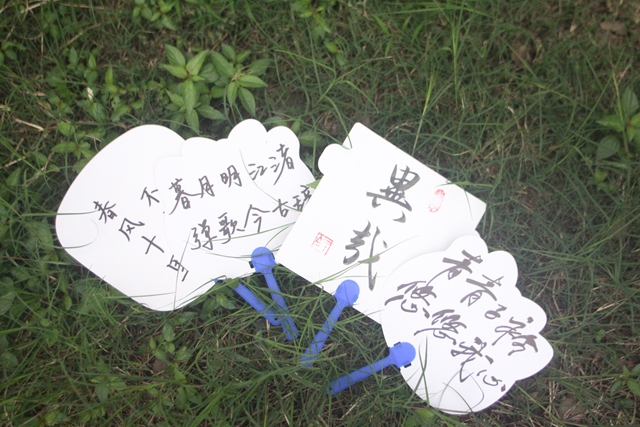 春风十里
不
暮月明江渚
弹歌今古
異哉
青青子衿
悠悠我心